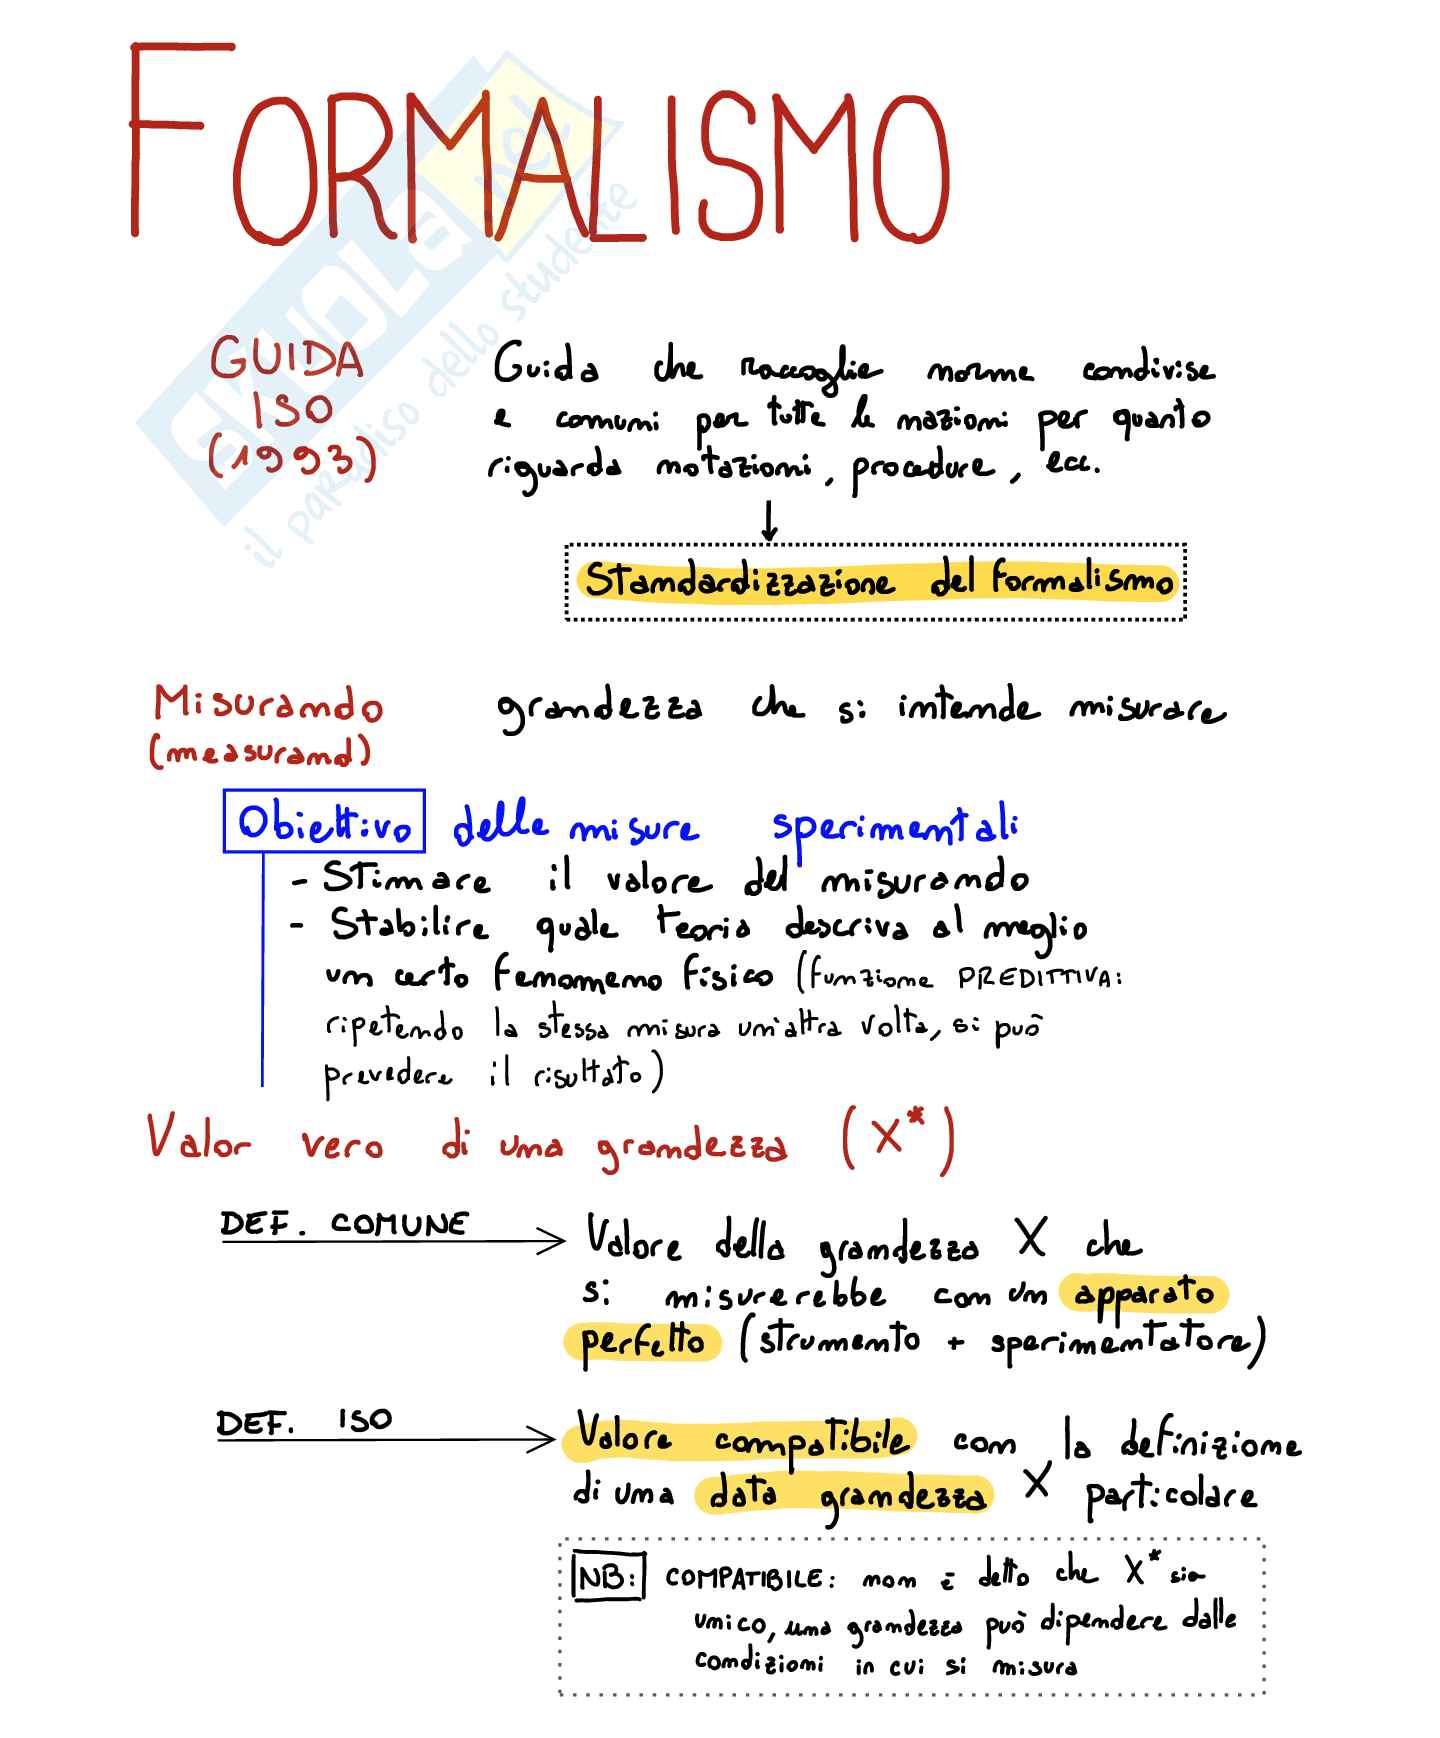 FORMALISMO
SKUOLA.net
il paradiso dello studente
GUIDA
ISO
(1993)
Guida che raccoglie norme condivise
e comuni per tutte le nazioni per quanto
riguarda notazioni, procedure, ecc.
↓
Standardizzazione del formalismo
Misurando
(measurand)
grandezza che si intende misurare
Obiettivo delle misure sperimentali
- Stimare il valore del misurando
- Stabilire quale teoria descriva al meglio
un certo fenomeno fisico (funzione PREDITTIVA:
ripetendo la stessa misura un'altra volta, si può
prevedere il risultato)
Valor vero di una grandezza (X*)
DEF. COMUNE
Valore della grandezza X che
si misurerebbe con un apparato
perfetto (strumento + sperimentatore)
DEF. ISO
Valore compatibile con la definizione
di una data grandezza X particolare
NB: COMPATIBILE: non è detto che X* sia
unico, una grandezza può dipendere dalle
condizioni in cui si misura